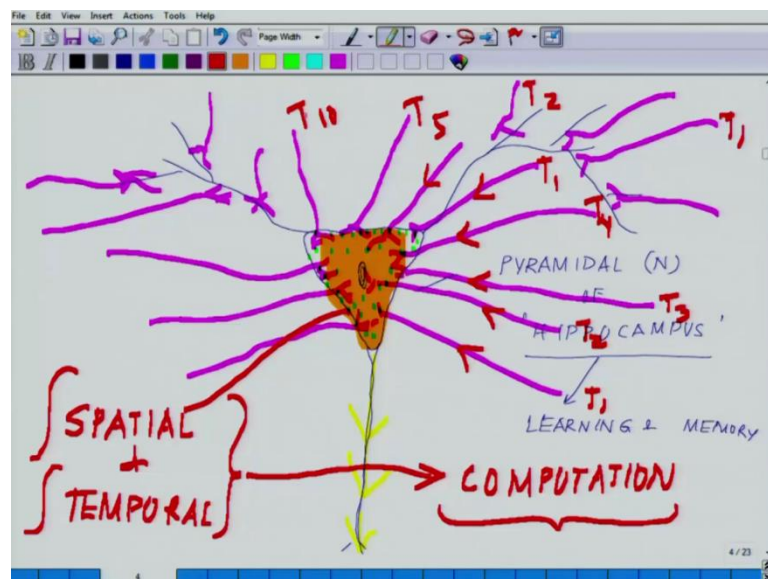 File Edit View Insert Actions Tools Help
Page Width
B I
T10 T5 T2 T1
T1
T4
PYRAMIDAL (N)
OF
T3
'HIPPOCAMPUS'
T2
T1
LEARNING & MEMORY
∫ SPATIAL
+
∫ TEMPORAL
COMPUTATION
4/23
4